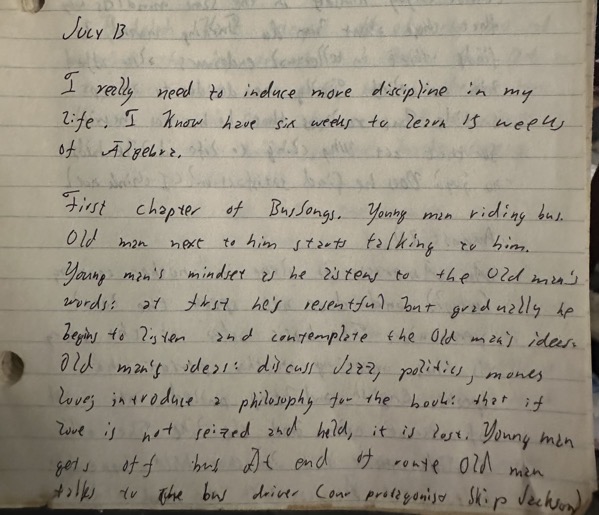 July 13
I really need to induce more discipline in my
life. I know have six weeks to learn 15 weeks
of Algebra.
First chapter of BusSongs. Young man riding bus.
Old man next to him starts talking to him.
Young man's mindset as he listens to the old man's
words: at first he's resentful but gradually he
begins to listen and contemplate the old man's ideas.
Old man's ideas: discuss Jazz, politics, money
love; introduce a philosophy for the book: that if
love is not seized and held, it is lost. Young man
gets off bus At end of route Old man
talks to the bus driver (our protagonist Skip Jackson)